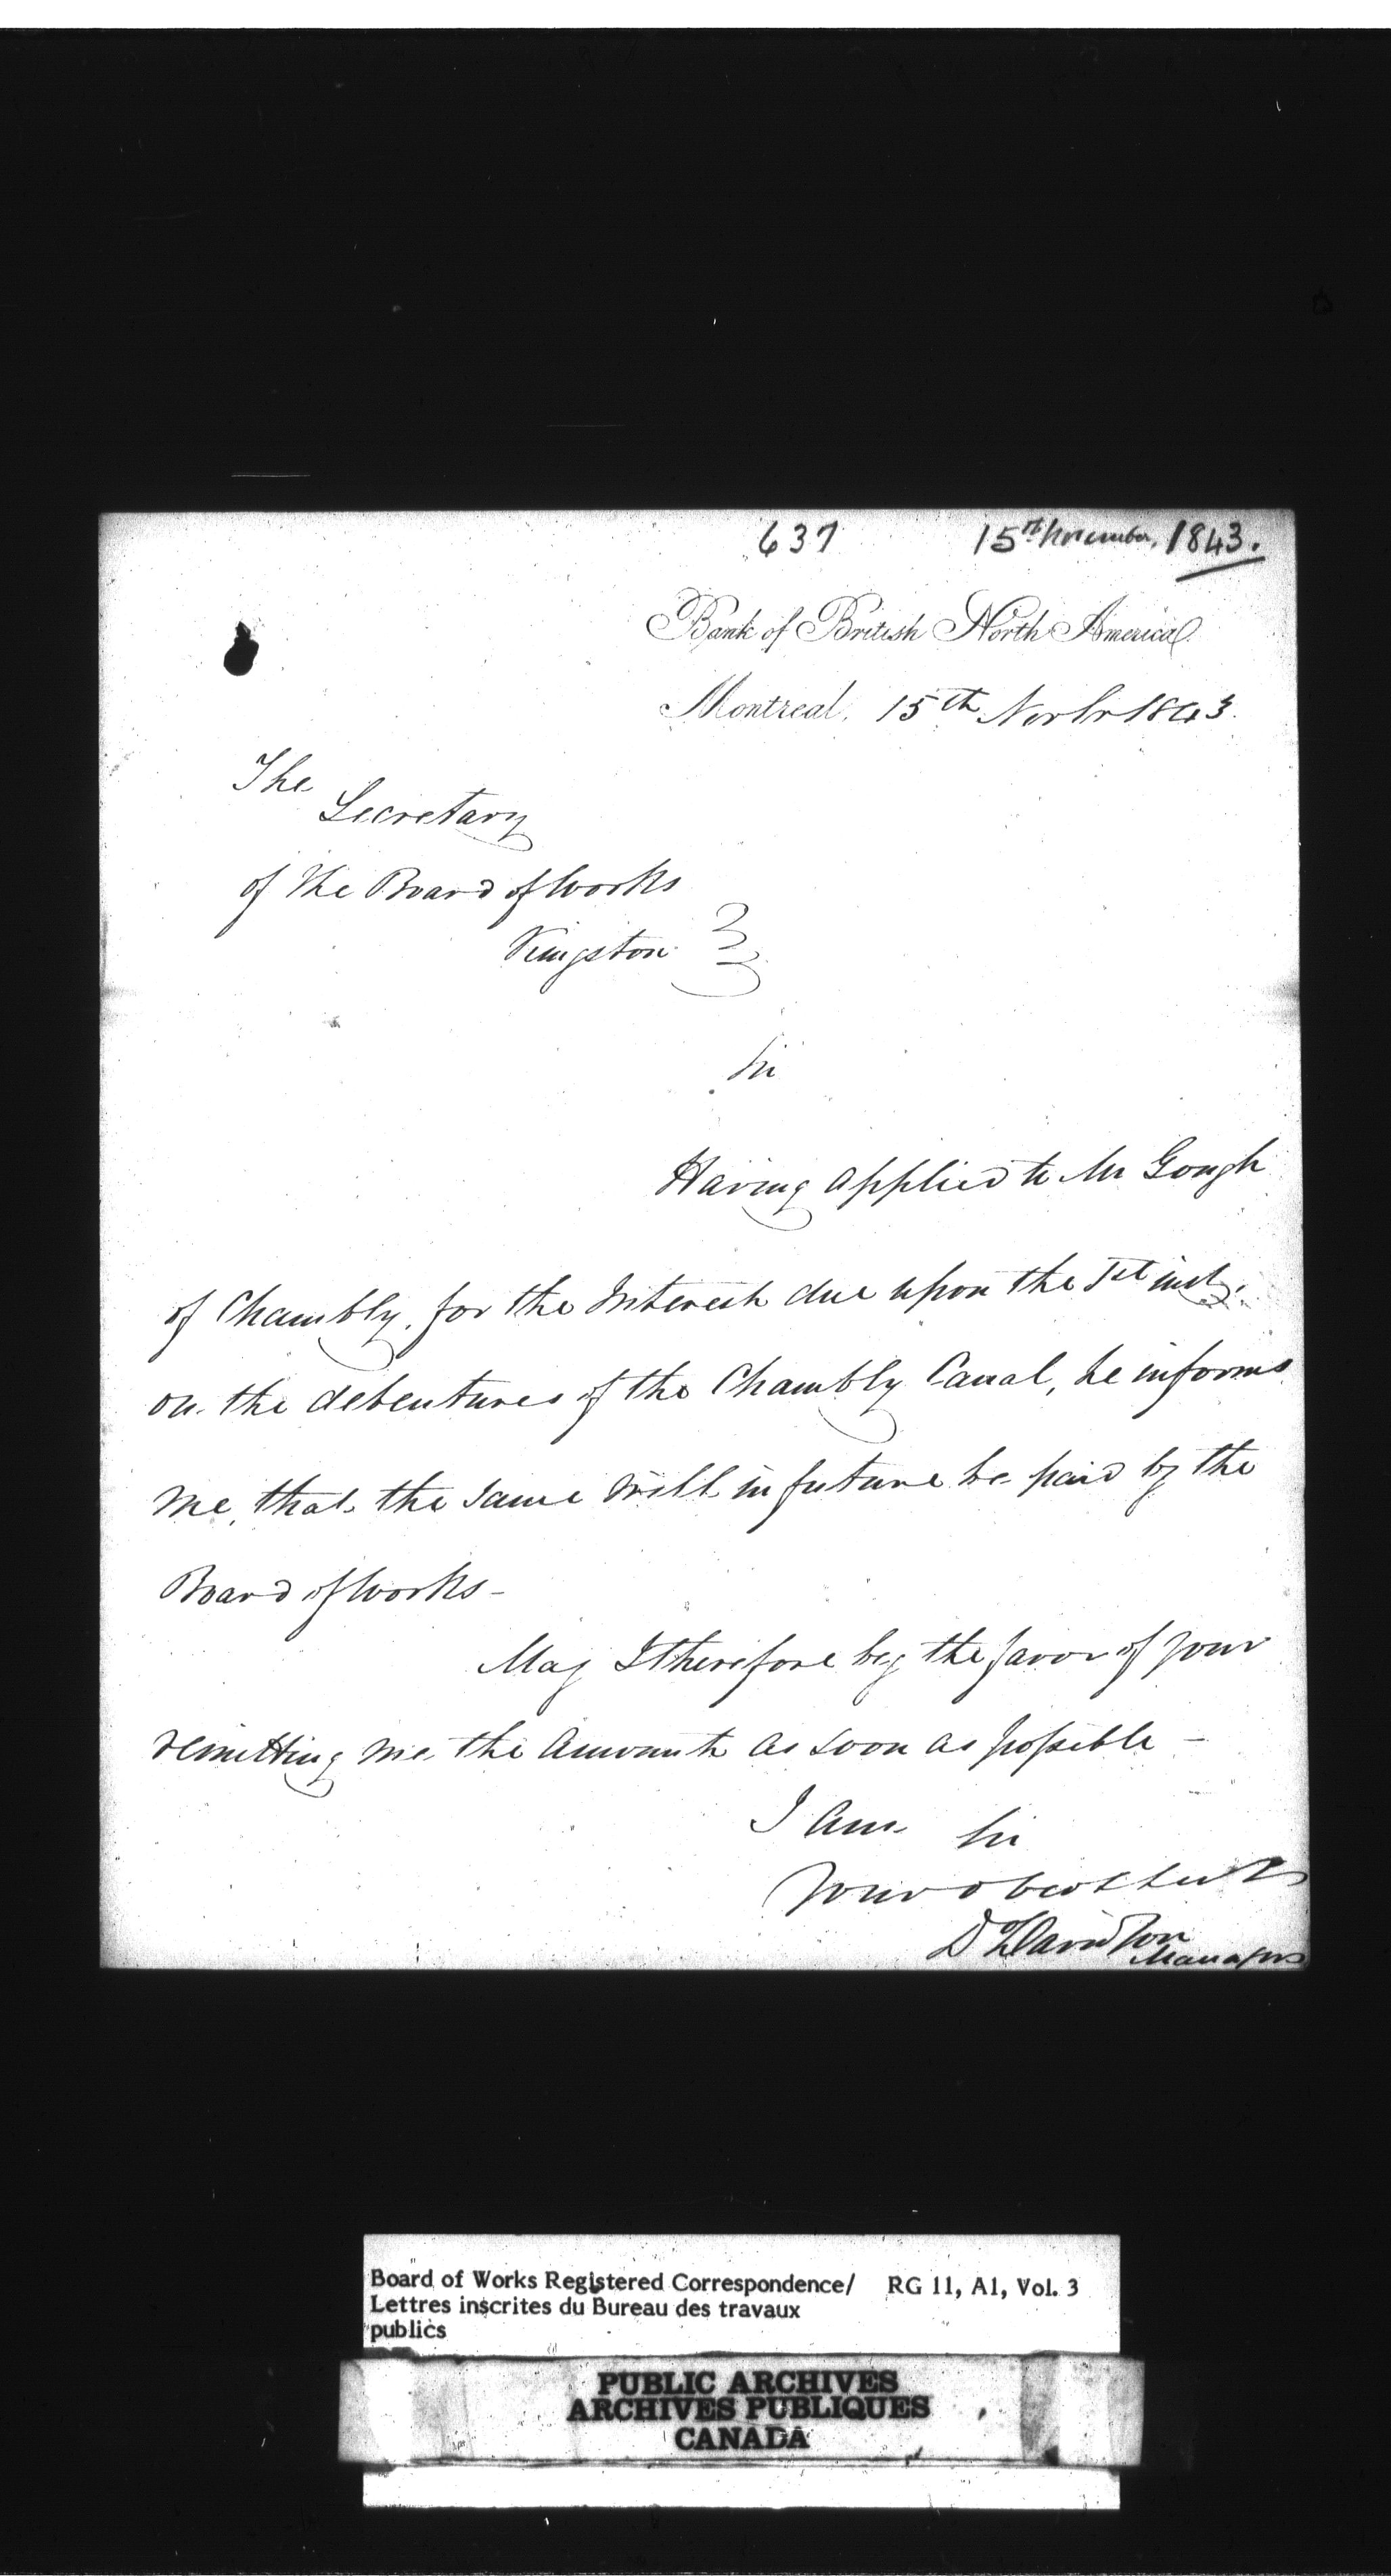 637 15th November, 1843.
Bank of British North America
Montreal, 15th Novbr 1843.
The
Secretary
of the Board of Works
Kingston
Sir
Having applied to Mr Gough
of Chambly, for the Interest due upon the 1st inst,
on the debentures of the Chambly Canal, he informs
me, that the same will in future be paid by the
Board of Works -
May I therefore beg the favor of your
remitting me the Amount as soon as possible -
I am Sir
Your obedt Servt
D Davidson
Manager
Board of Works Registered Correspondence/ RG 11, A1, Vol. 3
Lettres inscrites du Bureau des travaux
publics
PUBLIC ARCHIVES
ARCHIVES PUBLIQUES
CANADA